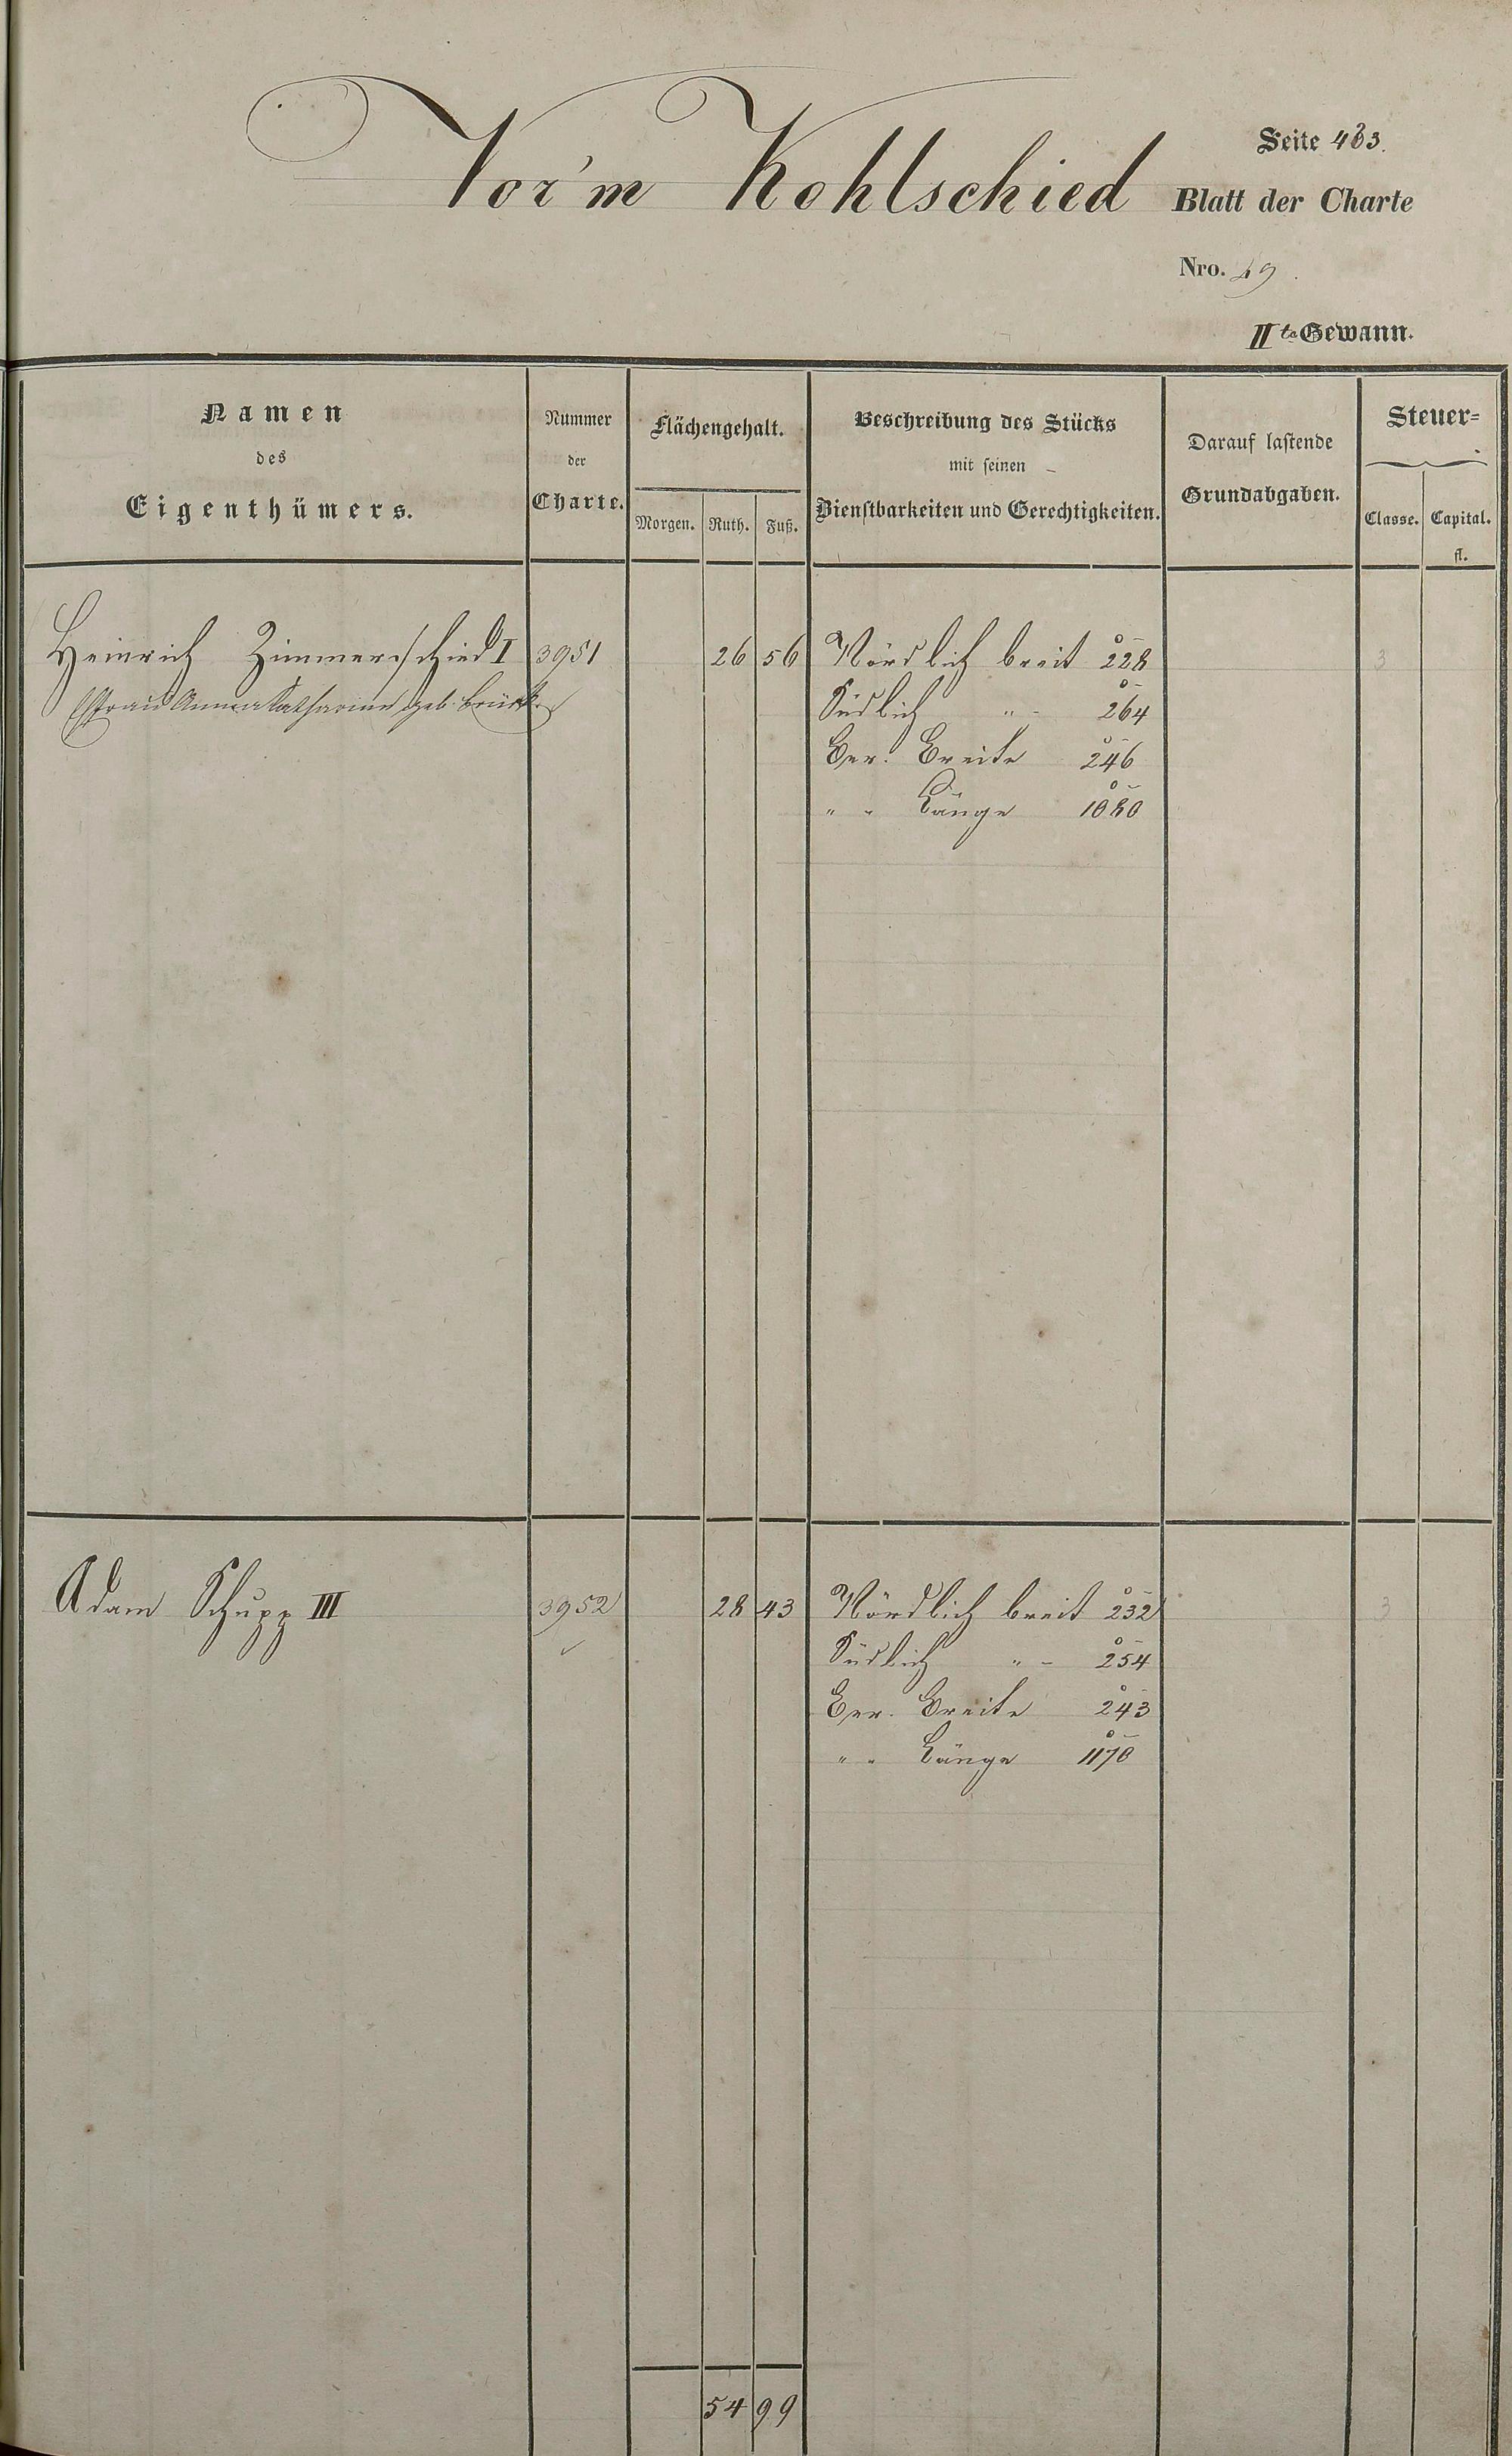 Vor'm Kohlschied
Seite 483.
Blatt der Charte
Nro. 49.
II te Gewann.
Namen
des
Eigenthümers.
Nummer
der
Charte.
Flächengehalt.
Morgen. Ruth. Fuß.
Beschreibung des Stücks
mit seinen
Dienstbarkeiten und Gerechtigkeiten.
Darauf lastende
Grundabgaben.
Steuer-
Classe. Capital.
fl.
Heinrich Zimmerschied I 3951 26 56 Nördlich breit 228 3
Ehefrau Anna Katharine geb. Brück Südlich " - 264
Ger. Breite 246
" " Länge 1080
Adam Schupp III 3952 28 43 Nördlich breit 232 3
Südlich " - 254
Ger. Breite 243
" " Länge 1170
54 99